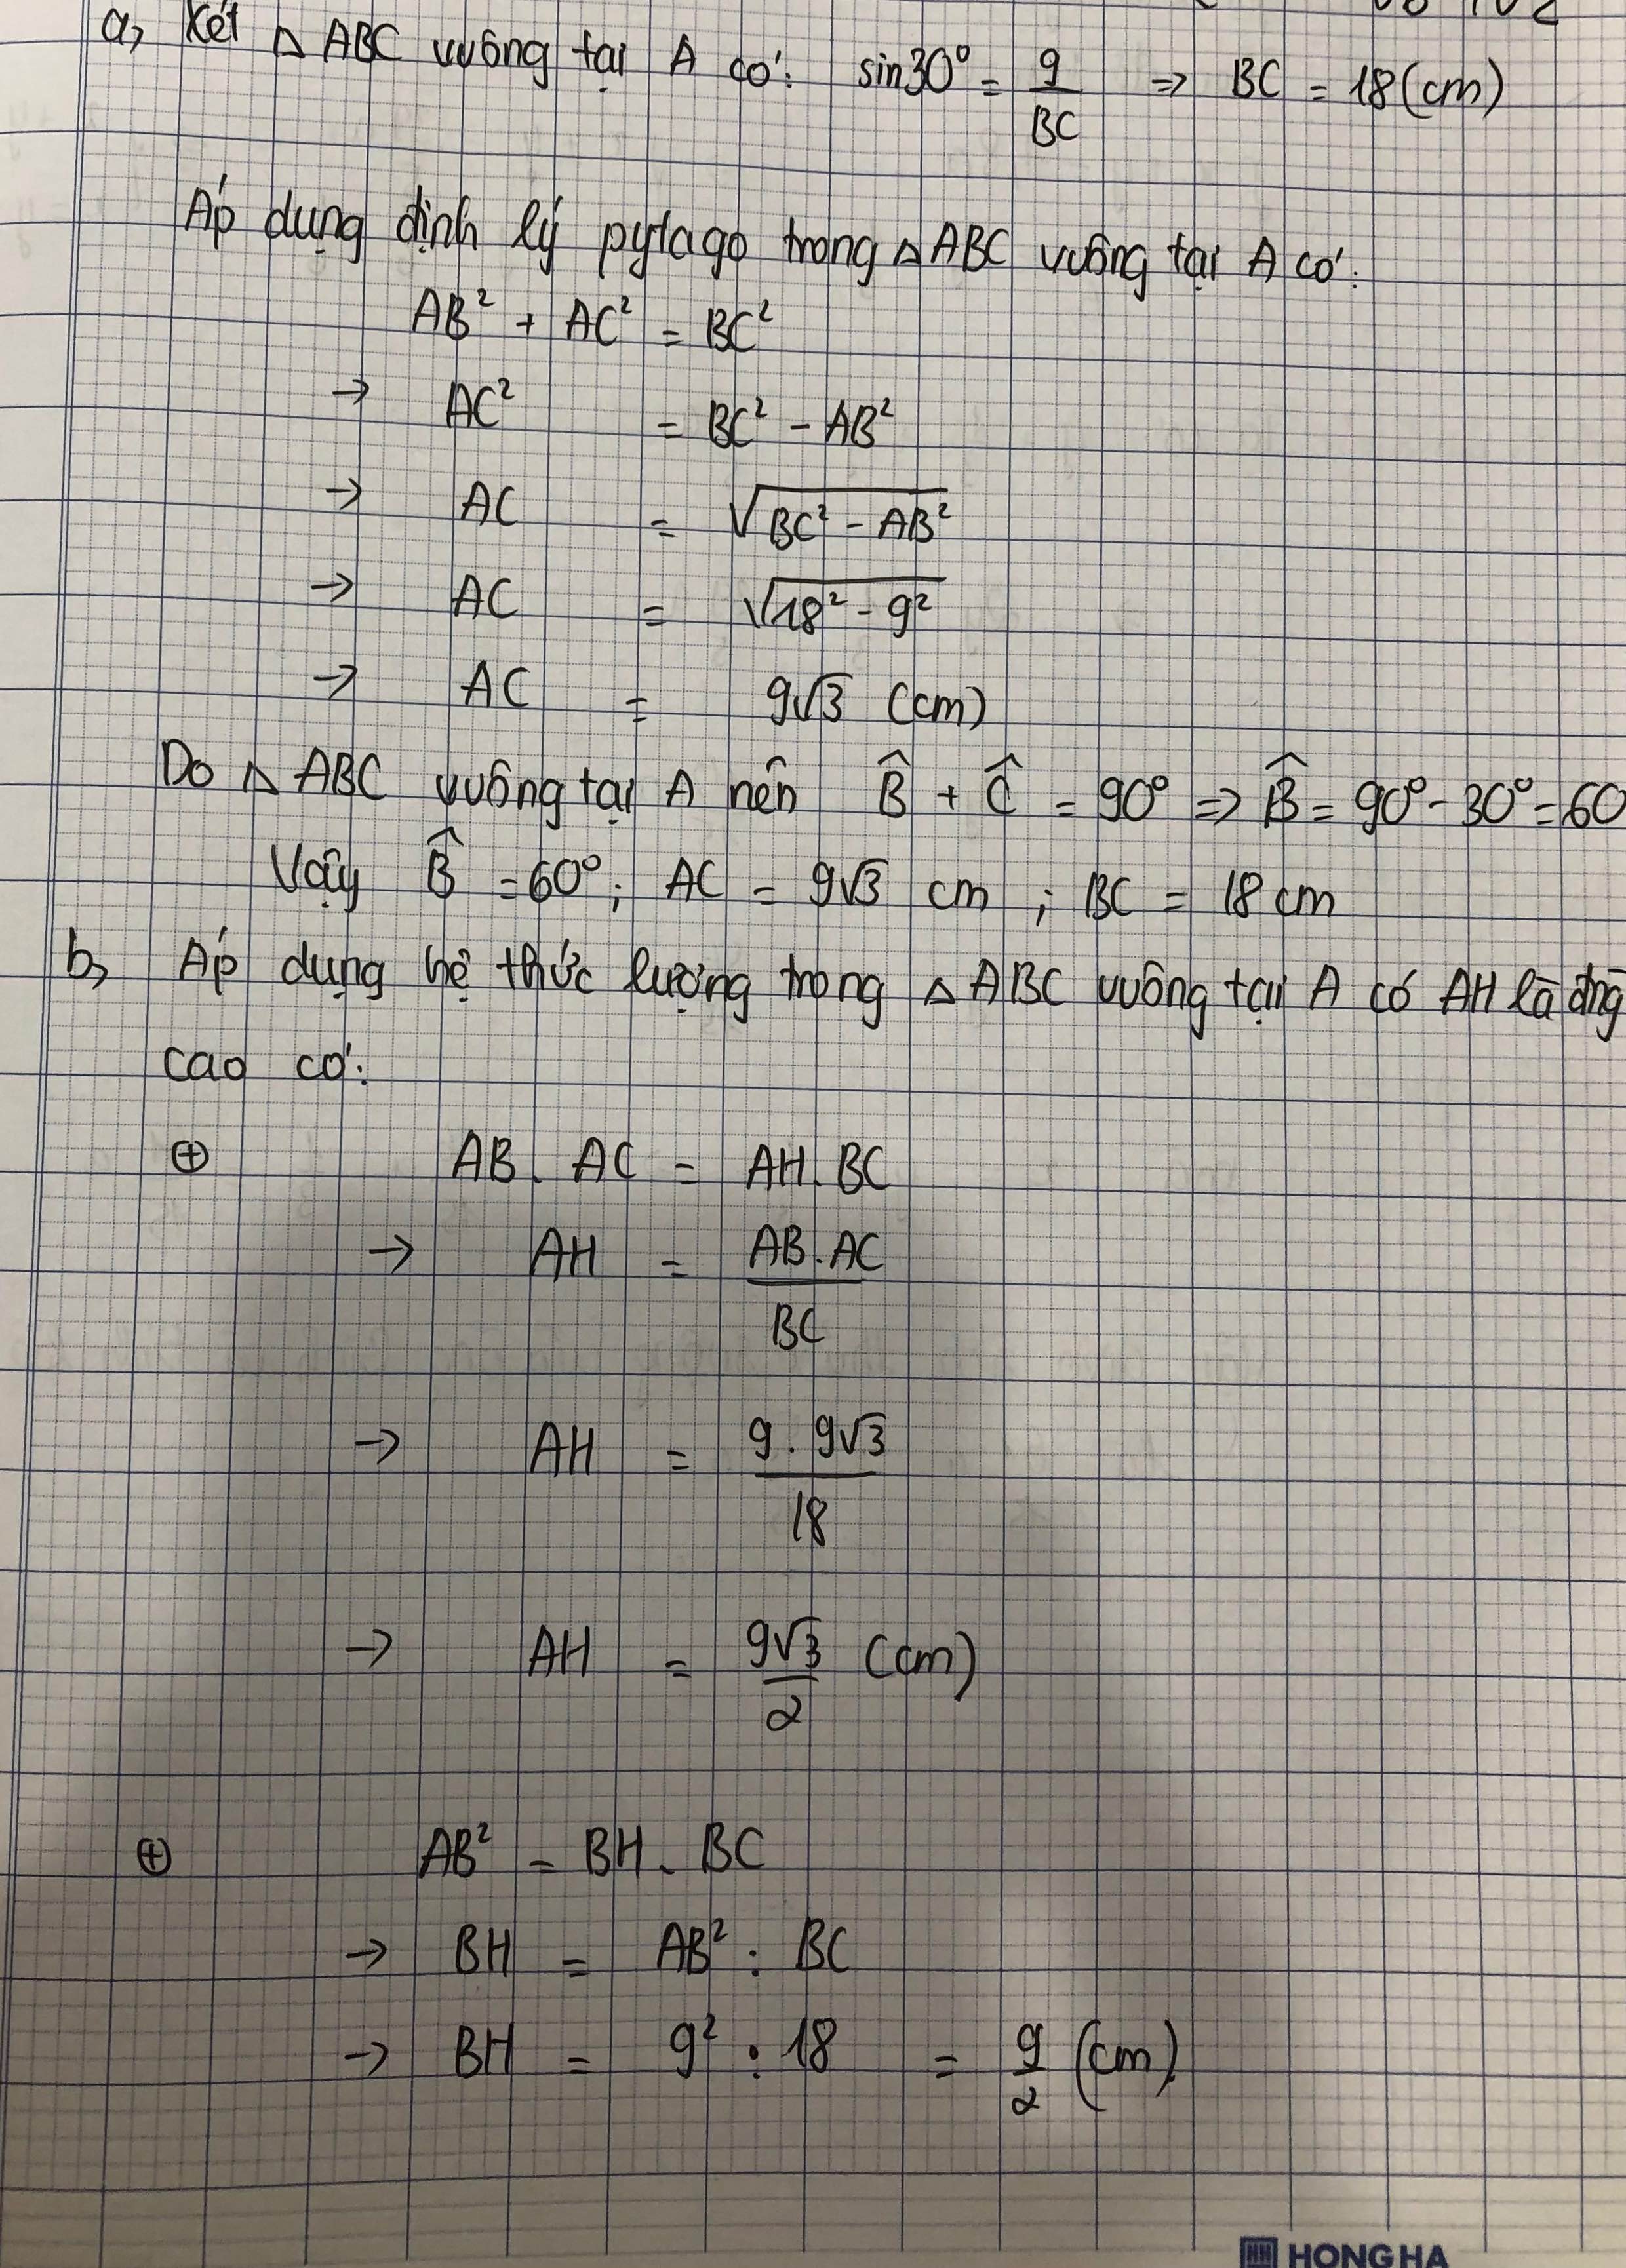 a, Xét △ ABC vuông tại A có: sin30° = 9/BC => BC = 18(cm)
Áp dụng định lý pytago trong △ ABC vuông tại A có:
AB² + AC² = BC²
→ AC² = BC² - AB²
→ AC = √(BC² - AB²)
→ AC = √(18² - 9²)
→ AC = 9√3 (cm)
Do △ ABC vuông tại A nên B̂ + Ĉ = 90° => B̂ = 90° - 30° = 60
Vậy B̂ = 60°; AC = 9√3 cm ; BC = 18 cm
b, Áp dụng hệ thức lượng trong △ ABC vuông tại A có AH là đng
cao có:
⊕ AB . AC = AH . BC
→ AH = AB.AC/BC
→ AH = 9.9√3/18
→ AH = 9√3/2 (cm)
⊕ AB² = BH . BC
→ BH = AB² : BC
→ BH = 9² : 18 = 9/2 (cm)
HONG HA